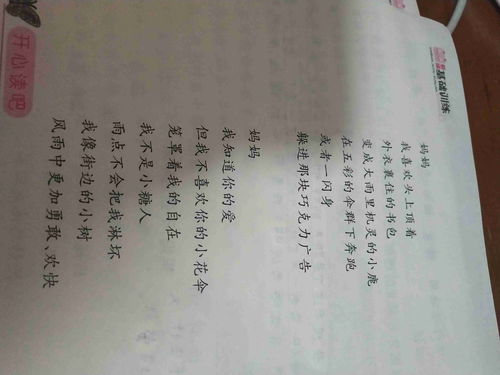 基础训练
妈妈
我喜欢头上顶着
外衣裹住的书包
变成大雨里机灵的小鹿
在五彩的伞群下奔跑
或者一闪身
躲进那块巧克力广告
妈妈
我知道你的爱
但我不喜欢你的小花伞
笼罩着我的自在
我不是小糖人
雨点不会把我淋坏
我像街边的小树
风雨中更加勇敢、欢快
开心读吧